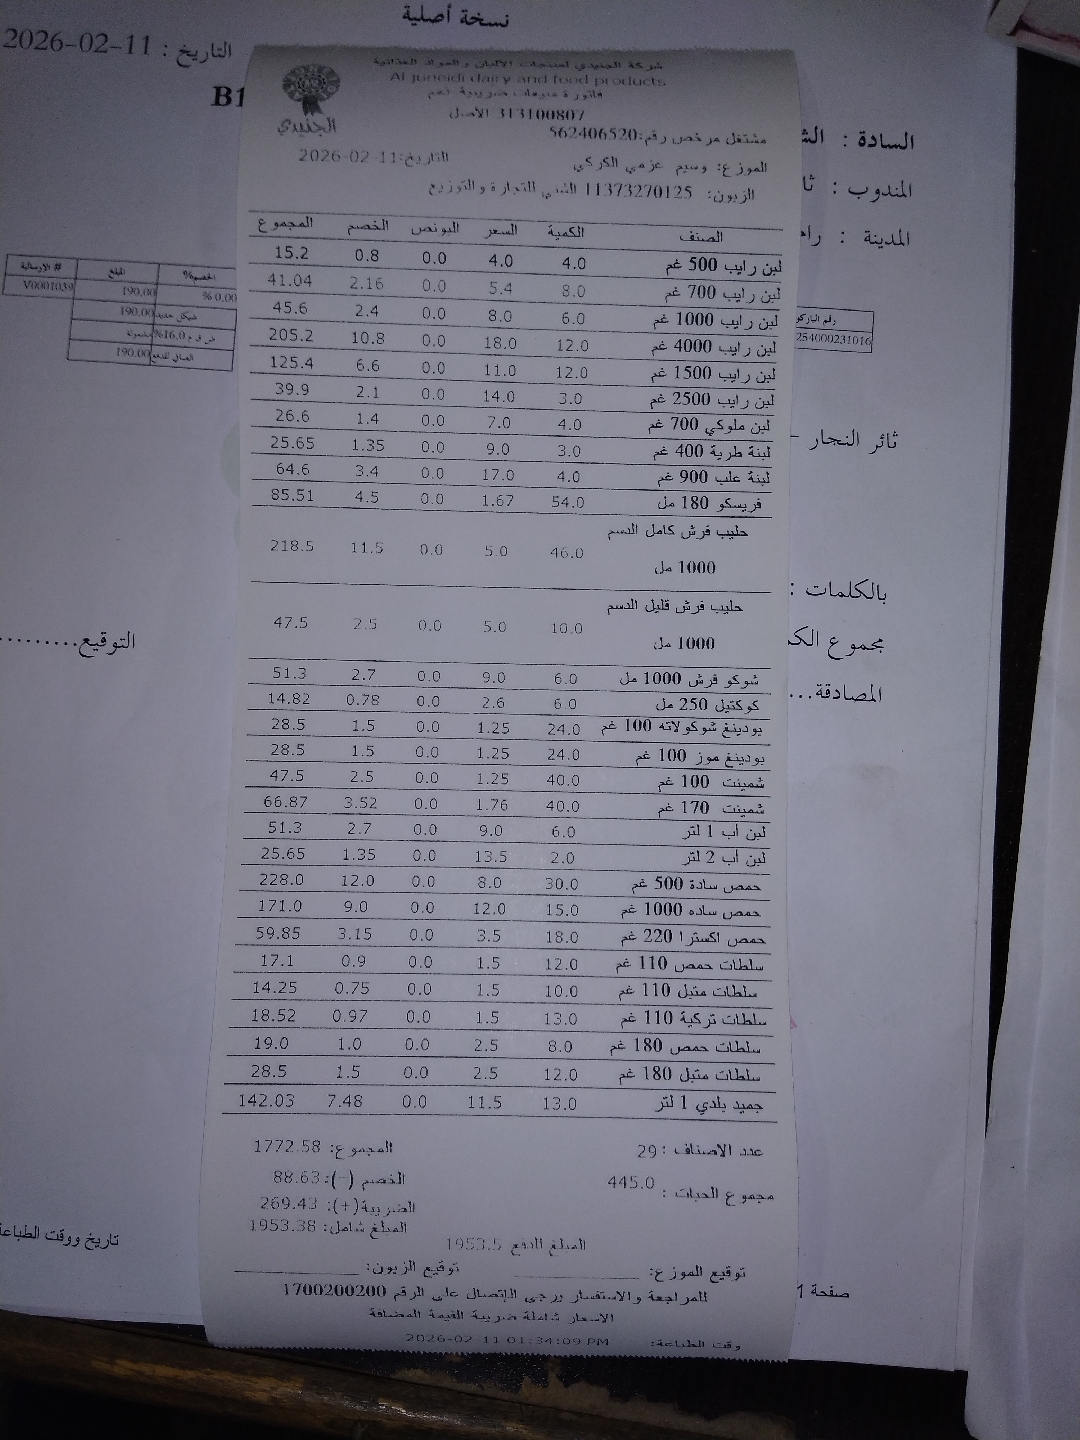 نسخة أصلية
التاريخ : 2026-02-11
B1
السادة : الش
المندوب : ثا
المدينة : رام
# الارسالية المبلغ الخصم%
V0001039 190.00 % 0.00
190.00 شيكل جديد
ض ق م 16.0% مشمولة
190.00 الصافي للدفع
رقم الباركو
254000231016
ثائر النجار -
بالكلمات :
مجموع الك
المصادقة...
التوقيع.........
تاريخ ووقت الطباعة
صفحة 1
شركة الجنيدي لمنتجات الألبان و المواد الغذائية
Al juneidi dairy and food products
فاتورة مبيعات ضريبية نعم
313100807 الأصل
الجنيدي
مشتغل مرخص رقم:562406520
الموزع: وسيم عزمي الكركي التاريخ:2026-02-11
الزبون: 11373270125 الشني للتجارة والتوزيع
الصنف الكمية السعر البونص الخصم المجموع
لبن رايب 500 غم 4.0 4.0 0.0 0.8 15.2
لبن رايب 700 غم 8.0 5.4 0.0 2.16 41.04
لبن رايب 1000 غم 6.0 8.0 0.0 2.4 45.6
لبن رايب 4000 غم 12.0 18.0 0.0 10.8 205.2
لبن رايب 1500 غم 12.0 11.0 0.0 6.6 125.4
لبن رايب 2500 غم 3.0 14.0 0.0 2.1 39.9
لبن ملوكي 700 غم 4.0 7.0 0.0 1.4 26.6
لبنة طرية 400 غم 3.0 9.0 0.0 1.35 25.65
لبنة علب 900 غم 4.0 17.0 0.0 3.4 64.6
فريسكو 180 مل 54.0 1.67 0.0 4.5 85.51
حليب فرش كامل الدسم
1000 مل 46.0 5.0 0.0 11.5 218.5
حليب فرش قليل الدسم
1000 مل 10.0 5.0 0.0 2.5 47.5
شوكو فرش 1000 مل 6.0 9.0 0.0 2.7 51.3
كوكتيل 250 مل 6.0 2.6 0.0 0.78 14.82
بودينغ شوكولاته 100 غم 24.0 1.25 0.0 1.5 28.5
بودينغ موز 100 غم 24.0 1.25 0.0 1.5 28.5
شمينت 100 غم 40.0 1.25 0.0 2.5 47.5
شمينت 170 غم 40.0 1.76 0.0 3.52 66.87
لبن أب 1 لتر 6.0 9.0 0.0 2.7 51.3
لبن أب 2 لتر 2.0 13.5 0.0 1.35 25.65
حمص سادة 500 غم 30.0 8.0 0.0 12.0 228.0
حمص ساده 1000 غم 15.0 12.0 0.0 9.0 171.0
حمص اكسترا 220 غم 18.0 3.5 0.0 3.15 59.85
سلطات حمص 110 غم 12.0 1.5 0.0 0.9 17.1
سلطات متبل 110 غم 10.0 1.5 0.0 0.75 14.25
سلطات تركية 110 غم 13.0 1.5 0.0 0.97 18.52
سلطات حمص 180 غم 8.0 2.5 0.0 1.0 19.0
سلطات متبل 180 غم 12.0 2.5 0.0 1.5 28.5
جميد بلدي 1 لتر 13.0 11.5 0.0 7.48 142.03
عدد الاصناف : 29 المجموع: 1772.58
مجموع الحبات : 445.0 الخصم (-):88.63
الضريبة(+): 269.43
المبلغ شامل: 1953.38
المبلغ للدفع 1953.5
توقيع الموزع: توقيع الزبون:
للمراجعة والاستفسار يرجى الإتصال على الرقم 1700200200
الاسعار شاملة ضريبة القيمة المضافة
وقت الطباعة: 2026-02-11 01:34:09 PM